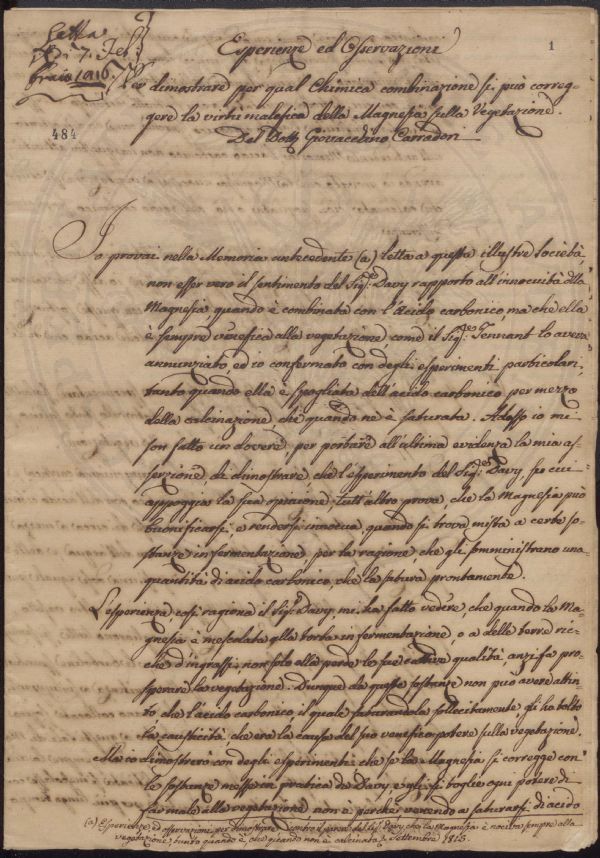 Letta
li 7. Feb
braio 1816.
1
484
Esperienze ed Osservazioni
Per dimostrare per qual Chimica combinazione si può correg=
gere la virtù malefica della Magnesia sulla Vegetazione.
Del Dott. Giovacchino Carradori
Io provai nella Memoria antecedente (a) letta a questa illustre Società,
non esser vero il sentimento del Sig.r Davy rapporto all'innocuità della
Magnesia quando è combinata con l'Acido carbonico, ma che ella
è sempre venefica alla vegetazione come il Sig.r Tennant lo aveva
annunziato, ed io confermato con degli esperimenti particolari,
tanto quando ella è spogliata dell'acido carbonico per mezzo
della calcinazione, che quando ne è saturata. Adesso io mi
son fatto un dovere, per portare all'ultima evidenza la mia as=
serzione, di dimostrare, che l'esperimento del Sig.r Davy, su cui
appoggia la sua opinione, tutt'altro prova, che la Magnesia può
buonificarsi, e rendersi innocua quando si trova mista a certe so=
stanze in fermentazione per la ragione, che gli somministrano una
quantità di acido carbonico, che la satura prontamente.
L'esperienza, così ragiona il Sig.r Davy, mi ha fatto vedere, che quando la Ma=
gnesia è mescolata alla torba in fermentazione, o a delle terre ric=
che d'ingrassi, non solo ella perde le sue cattive qualità, anzi fa pro=
sperare la vegetazione. Dunque da queste sostanze non può avere attin=
to che l'acido carbonico, il quale saturandola sollecitamente, gli ha tolto
la causticità, che era la causa del suo venefico potere sulla vegetazione.
Ma io dimostrerò con degli esperimenti, che se la Magnesia si corregge con
le sostanze messe in pratica da Davy, e gli si toglie ogni potere di
far male alla vegetazione, non è perchè venendo a saturarsi di acido
(a) Esperienze, ed osservazioni per dimostrare contro il parere del Sig.r Davy che la Magnesia è nociva sempre alla
vegetazione, tanto quando è, che quando non è calcinata. Settembre 1815.